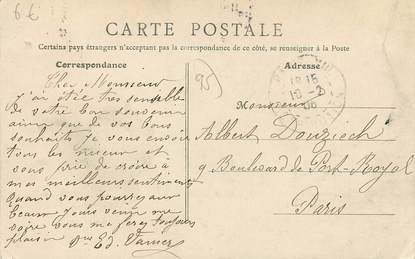 CARTE POSTALE
Certains pays étrangers n'acceptant pas la correspondance de ce côté, se renseigner à la Poste
Correspondance
Adresse
Cher Monsieur
J'ai étée très sensible
de votre bon souvenir
ainsi que de vos bons
souhaits je vous envoie
tous les mieux et
vous prie de croire à
mes meilleurs sentiments
Quand vous pourrez aux
beaux jours venir me
voire vous me ferez toujours
plaisir Ed.
95
18 15
10 - 2
06
Monsieur
Albert Douziech
9 Boulevard de Port-Royal
Paris